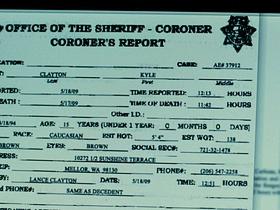 OFFICE OF THE SHERIFF - CORONER
CORONER'S REPORT
CASE: AE# 37912
CLAYTON KYLE
Last First Middle
5/18/09 TIME REPORTED: 12:13 HOURS
5/17/09 TIME OF DEATH: 11:42 HOURS
Other I.D.:
AGE: 15 YEARS (UNDER 1 YEAR: 0 MONTHS 0 DAYS)
RACE: CAUCASIAN EST HGT: 5' 4" EST WGT: 138
BROWN EYES: BROWN SOCIAL SEC#: 721-32-1478
10272 1/2 SUNSHINE TERRACE
MELLOR, WA 98130 PHONE#: (206) 547-2258
BY: LANCE CLAYTON DATE: 5/18/09 TIME: 12:51 HOURS
PHONE#: SAME AS DECEDENT